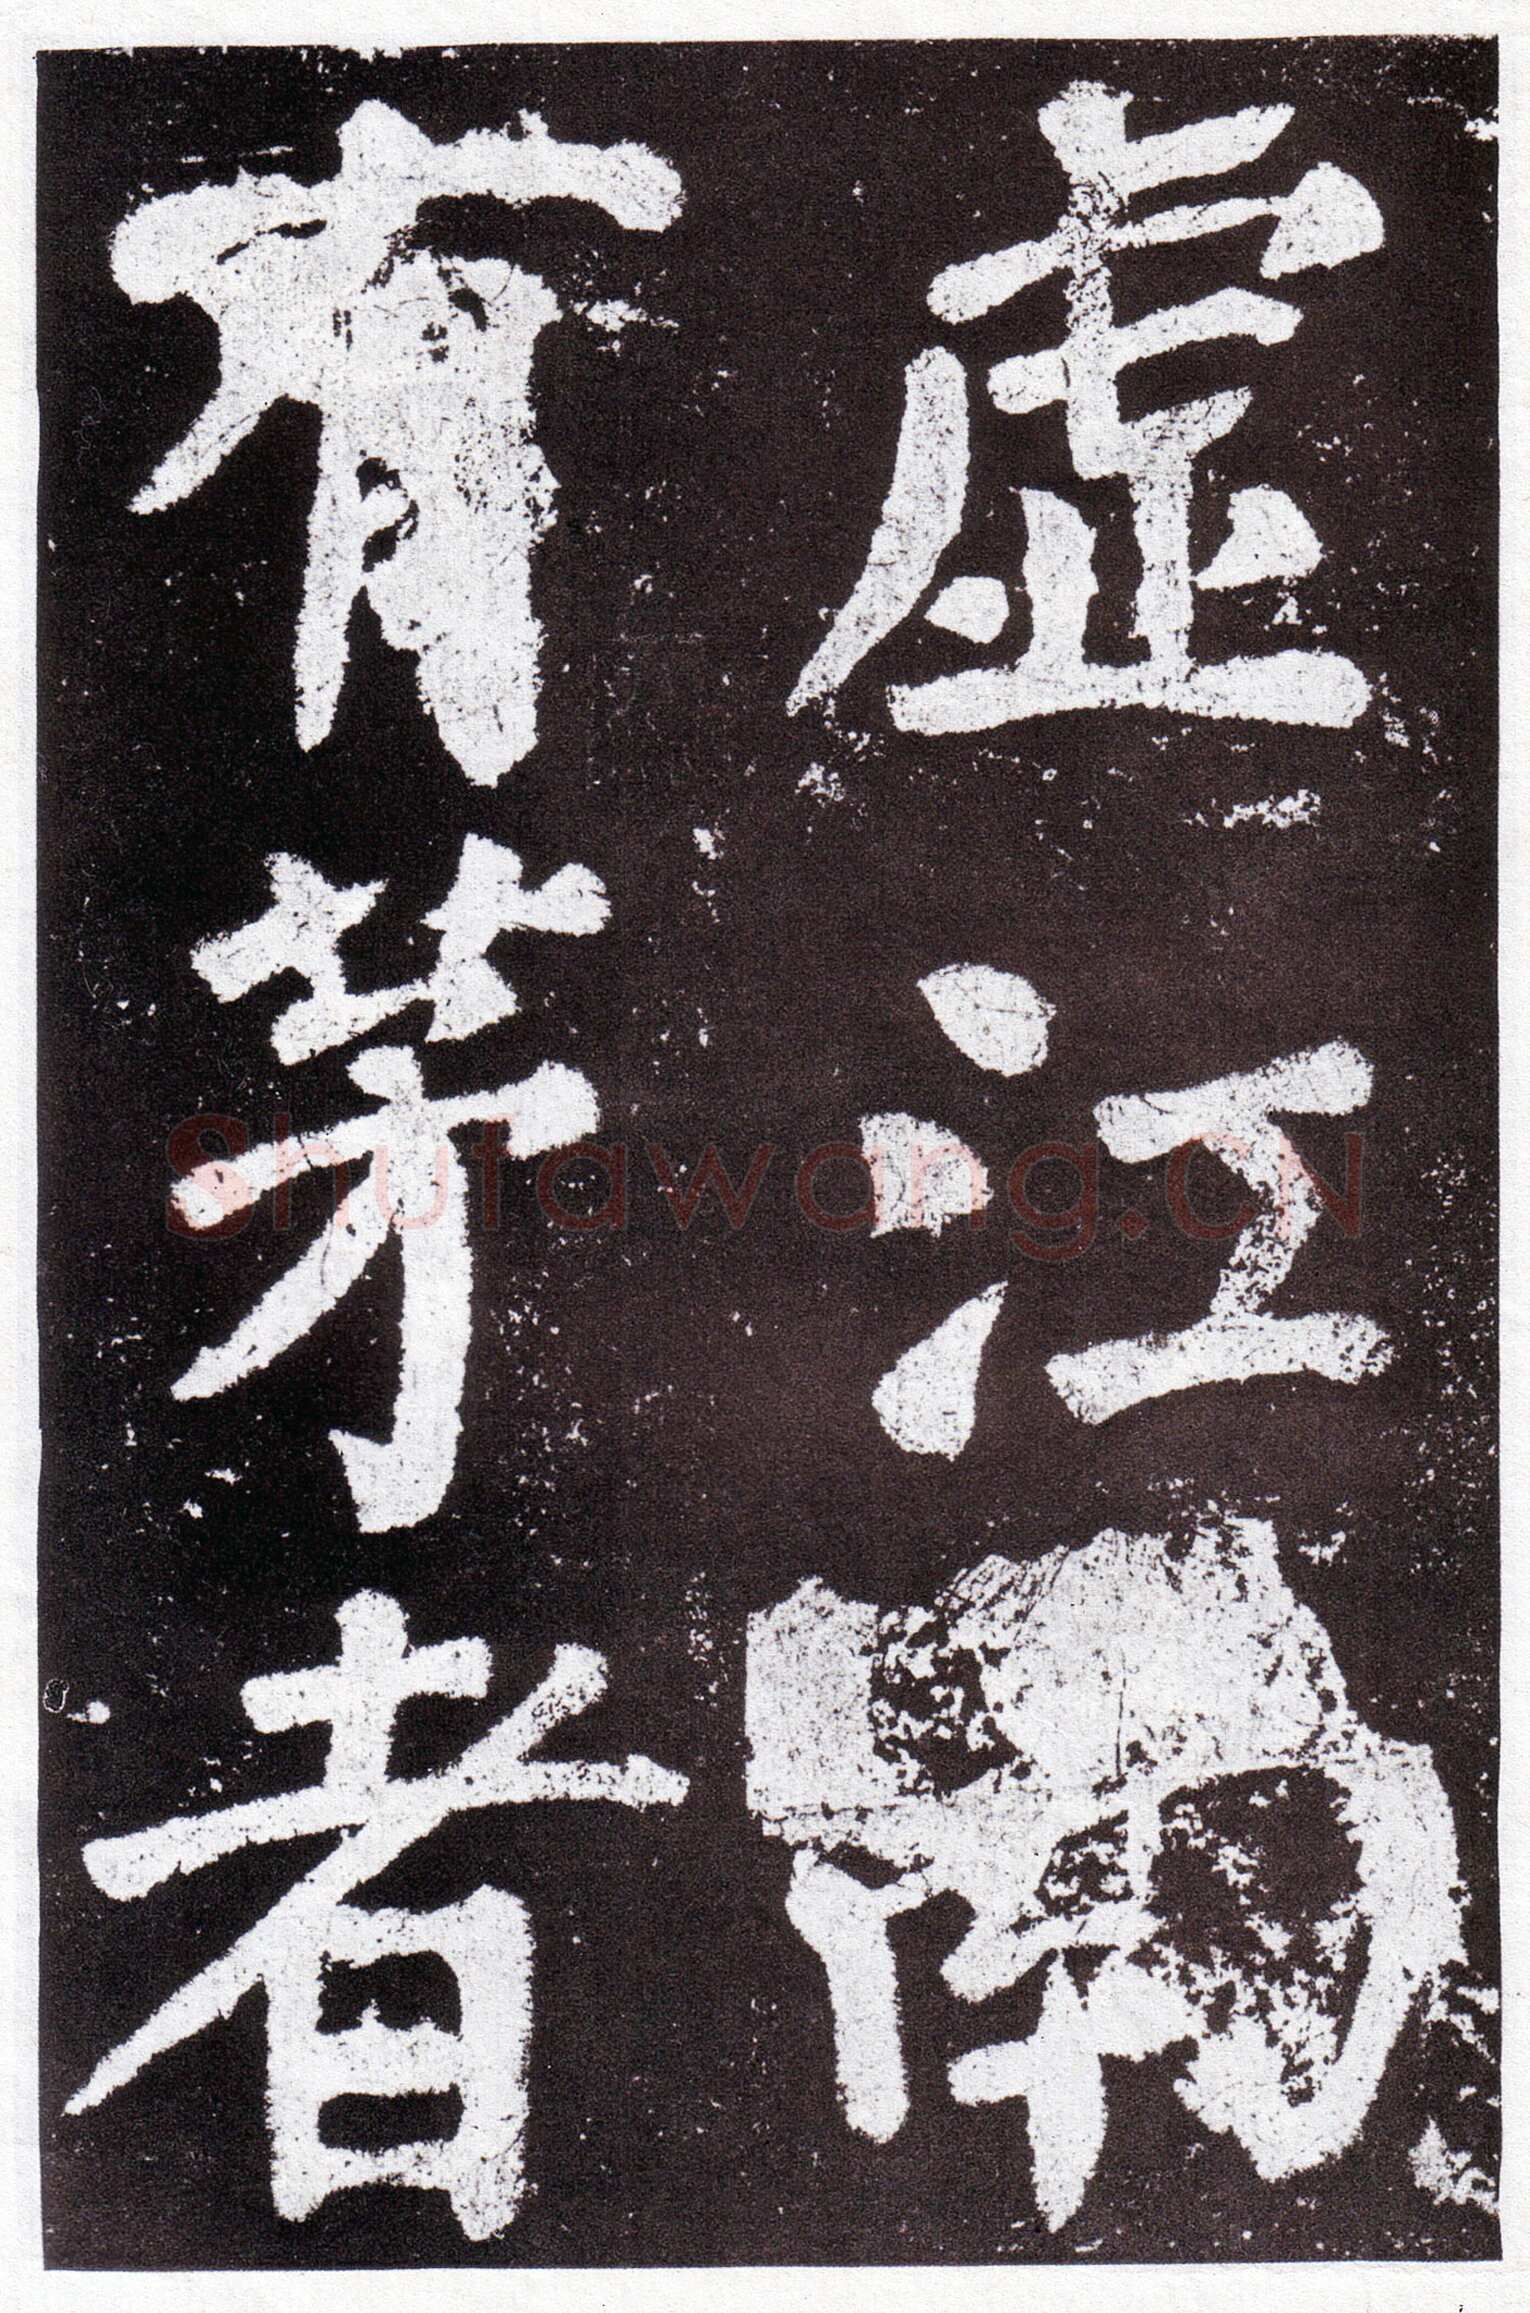 虚江南
有茅者
Shufawang.CN